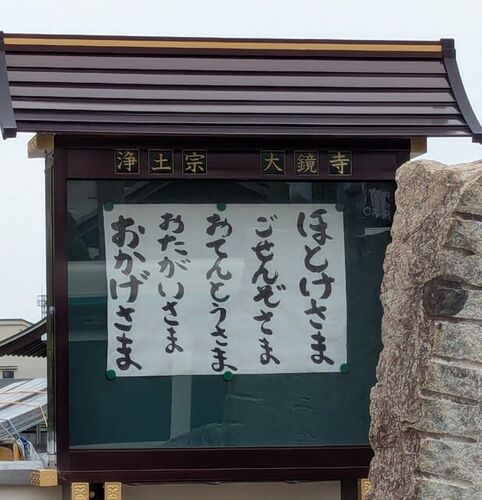 浄土宗 大鏡寺
ほとけさま
ごせんぞさま
おてんとうさま
おたがいさま
おかげさま